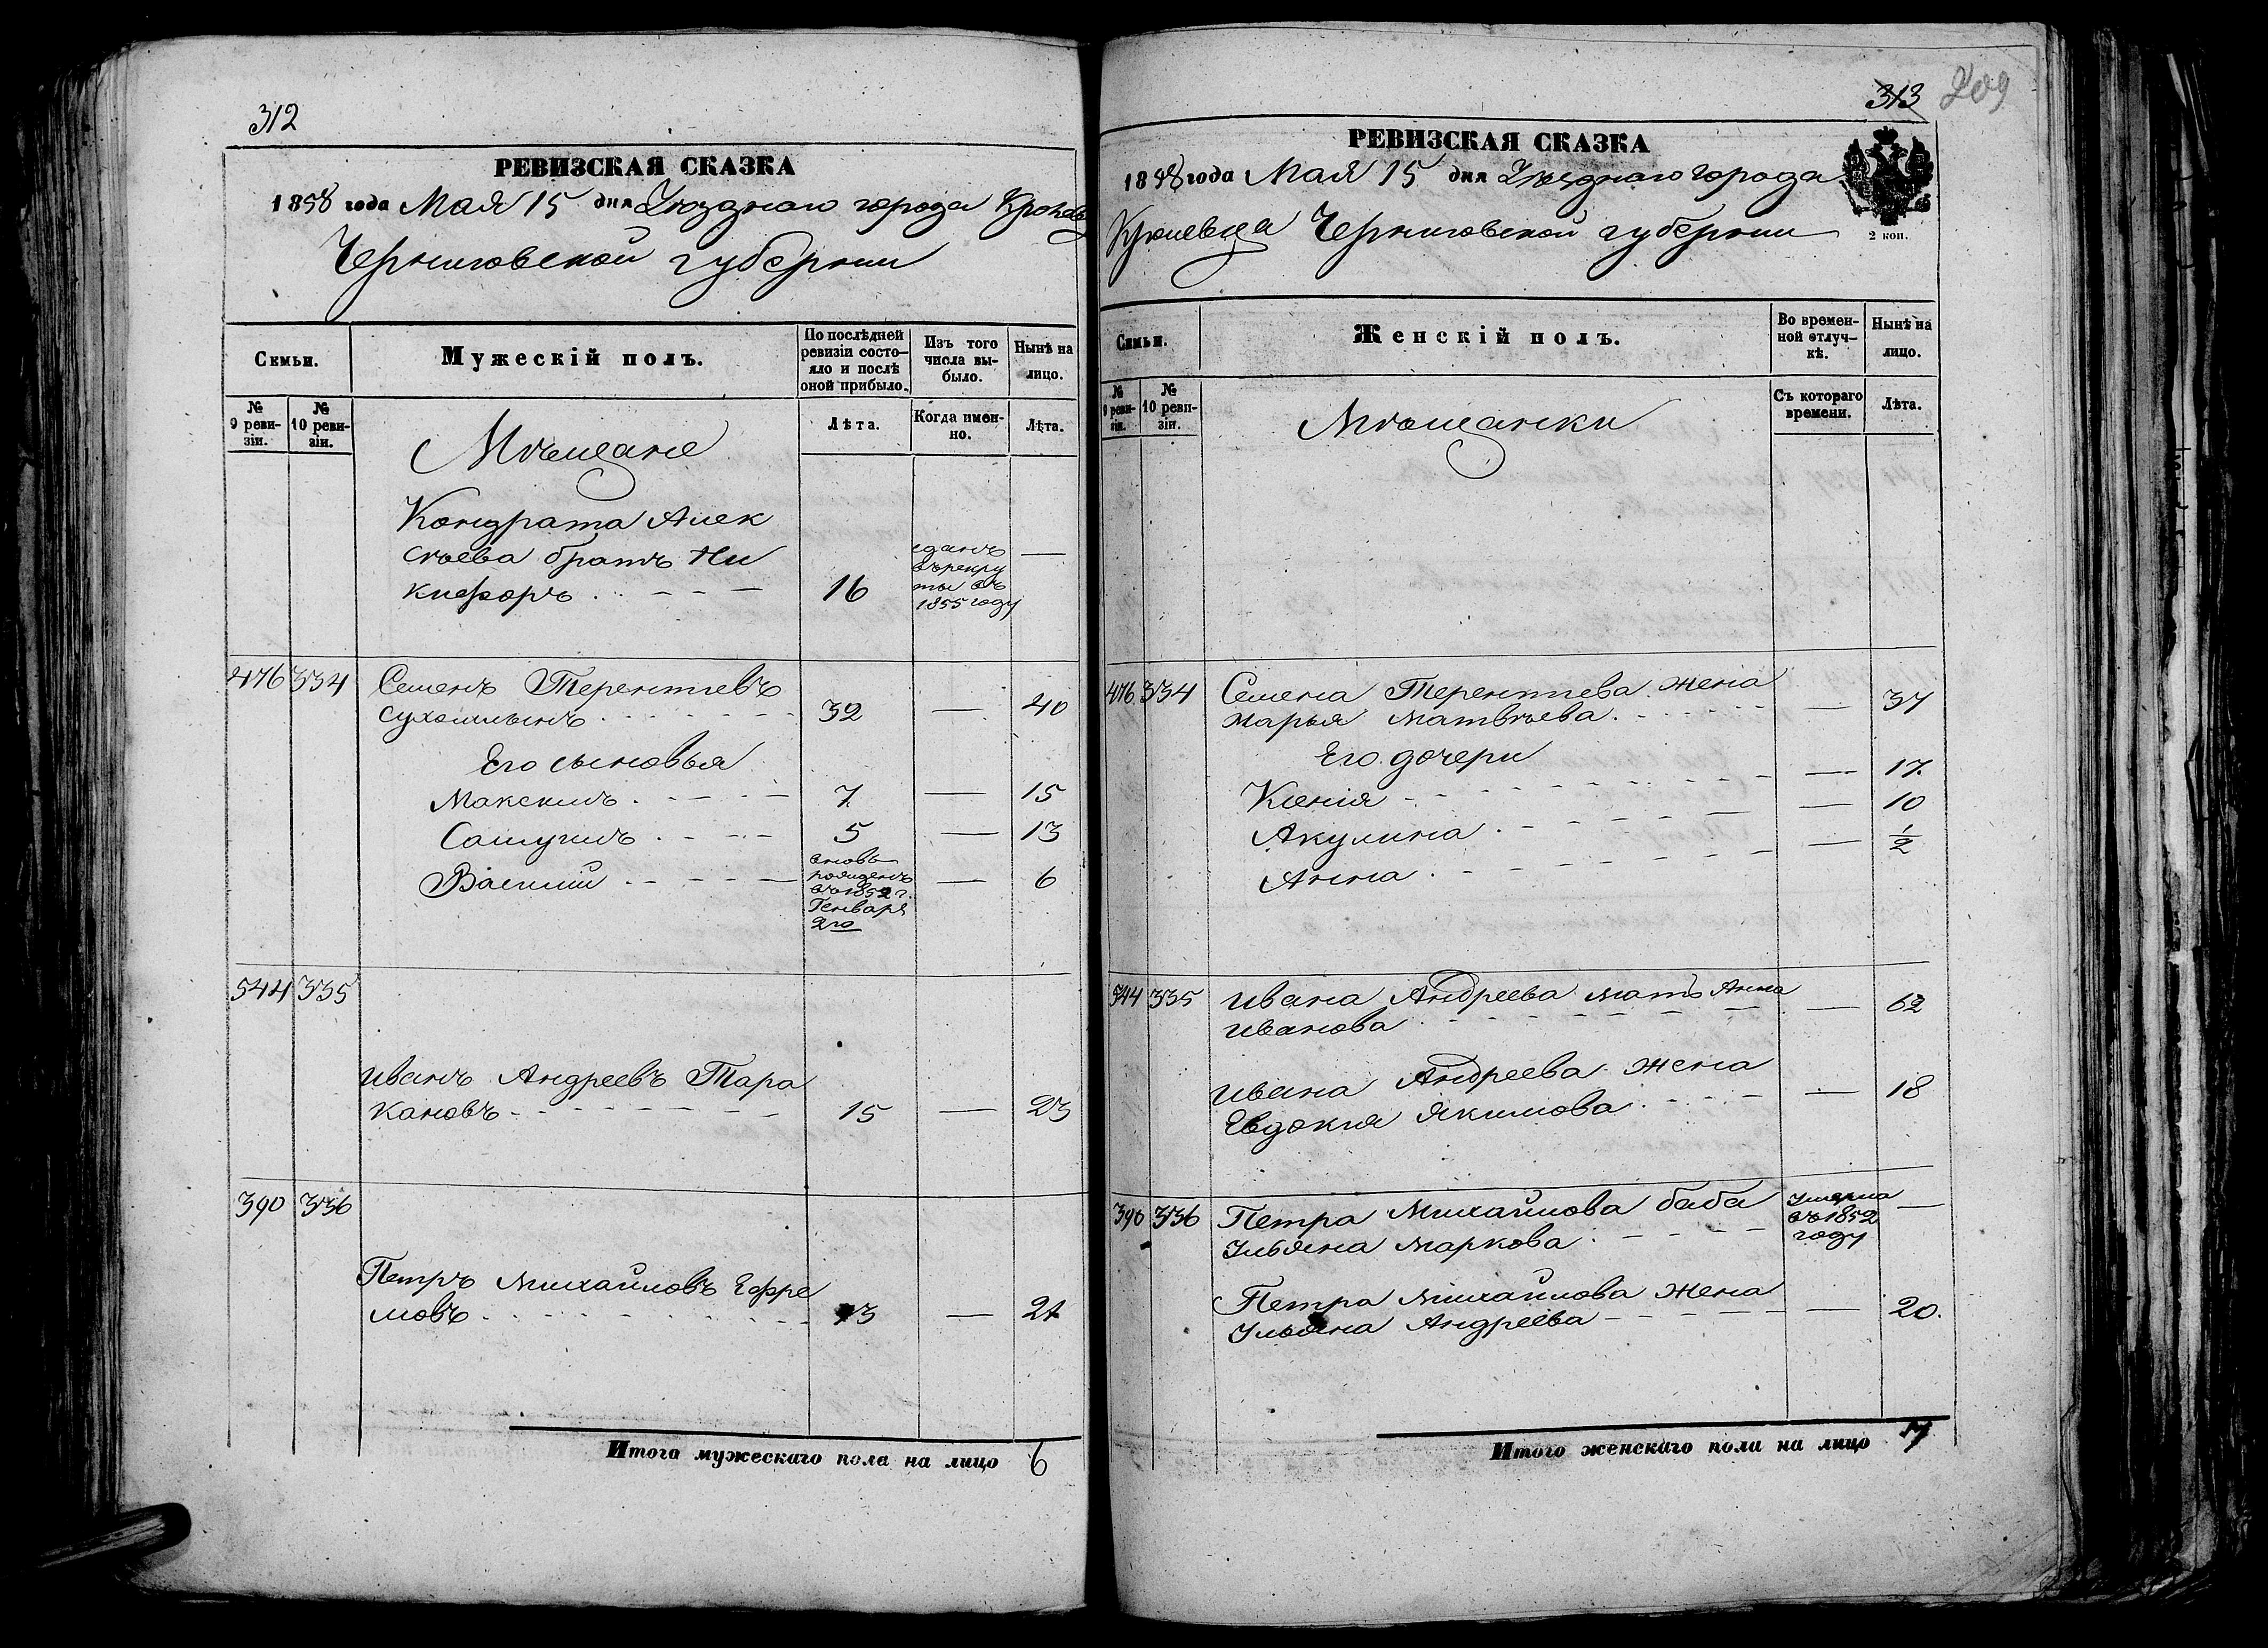 312
РЕВИЗСКАЯ СКАЗКА
1858 года Мая 15 дня Уѣзднаго города
Черниговской губерніи
Семьи.
Мужескій полъ.
По послѣдней ревизіи состояло и послѣ оной прибыло.
Изъ того числа выбыло.
Нынѣ на лицо.
№ 9 ревизіи.
№ 10 ревизіи.
Лѣта.
Когда именно.
Лѣта.
Мѣщане
Кондрата Алек
сѣева братъ Ни
кифоръ 16 сданъ въ рекруты въ 1855 году —
476 334 Семенъ Терентіевъ
32 — 40
Его сыновья
Максимъ 7 — 15
5 — 13
Василий вновь рожденъ въ 1852 г. Генваря 2го — 6
544 335
Иванъ Андреевъ Тара
кановъ 15 — 23
390 336
Петръ Михайловъ Ефре
мовъ 13 — 21
Итого мужескаго пола на лицо 6
313 209
РЕВИЗСКАЯ СКАЗКА
1858 года Мая 15 дня Уѣзднаго города
Кролевца Черниговской губерніи
2 коп.
Семьи.
Женскій полъ.
Во временной отлучкѣ.
Нынѣ на лицо.
№ 9 ревизіи.
№ 10 ревизіи.
Съ котораго времени.
Лѣта.
Мѣщанки
476 334 Семена Терентіева жена
Марья Матвѣева — 37
Его дочери
Ксенія — 17
Акулина — 10
Анна — 1/2
544 335 Ивана Андреева мать Анна
Иванова — 62
Ивана Андреева жена
Евдокия Якимова — 18
390 336 Петра Михайлова баба
Ульяна Маркова Умерла въ 1852 году —
Петра Михайлова жена
Ульяна Андреева — 20.
Итого женскаго пола на лицо 7